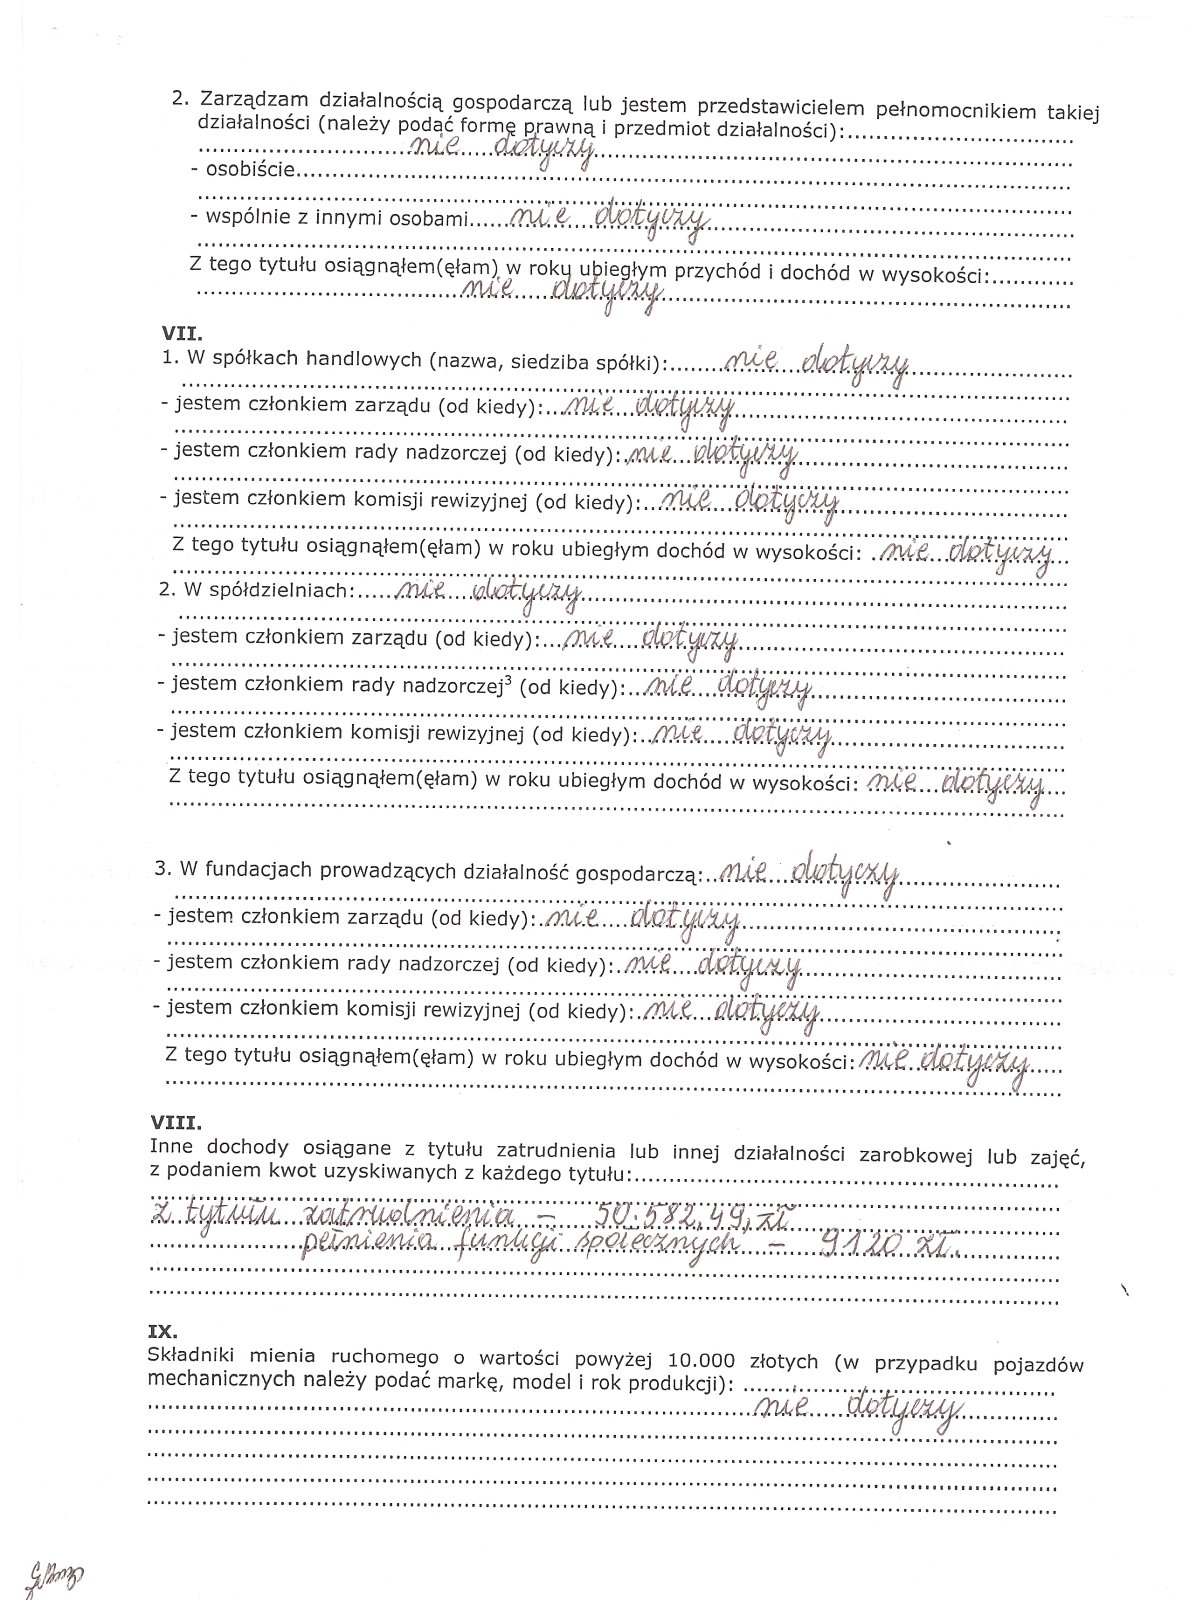 2. Zarządzam działalnością gospodarczą lub jestem przedstawicielem pełnomocnikiem takiej
działalności (należy podać formę prawną i przedmiot działalności):
nie dotyczy
- osobiście
- wspólnie z innymi osobami nie dotyczy
Z tego tytułu osiągnąłem(ęłam) w roku ubiegłym przychód i dochód w wysokości:
nie dotyczy
VII.
1. W spółkach handlowych (nazwa, siedziba spółki): nie dotyczy
- jestem członkiem zarządu (od kiedy): nie dotyczy
- jestem członkiem rady nadzorczej (od kiedy): nie dotyczy
- jestem członkiem komisji rewizyjnej (od kiedy): nie dotyczy
Z tego tytułu osiągnąłem(ęłam) w roku ubiegłym dochód w wysokości: nie dotyczy
2. W spółdzielniach: nie dotyczy
- jestem członkiem zarządu (od kiedy): nie dotyczy
- jestem członkiem rady nadzorczej³ (od kiedy): nie dotyczy
- jestem członkiem komisji rewizyjnej (od kiedy): nie dotyczy
Z tego tytułu osiągnąłem(ęłam) w roku ubiegłym dochód w wysokości: nie dotyczy
3. W fundacjach prowadzących działalność gospodarczą: nie dotyczy
- jestem członkiem zarządu (od kiedy): nie dotyczy
- jestem członkiem rady nadzorczej (od kiedy): nie dotyczy
- jestem członkiem komisji rewizyjnej (od kiedy): nie dotyczy
Z tego tytułu osiągnąłem(ęłam) w roku ubiegłym dochód w wysokości: nie dotyczy
VIII.
Inne dochody osiągane z tytułu zatrudnienia lub innej działalności zarobkowej lub zajęć,
z podaniem kwot uzyskiwanych z każdego tytułu:
z tytułu zatrudnienia – 50.582,49, zł
pełnienia funkcji społecznych – 9120 zł.
IX.
Składniki mienia ruchomego o wartości powyżej 10.000 złotych (w przypadku pojazdów
mechanicznych należy podać markę, model i rok produkcji):
nie dotyczy